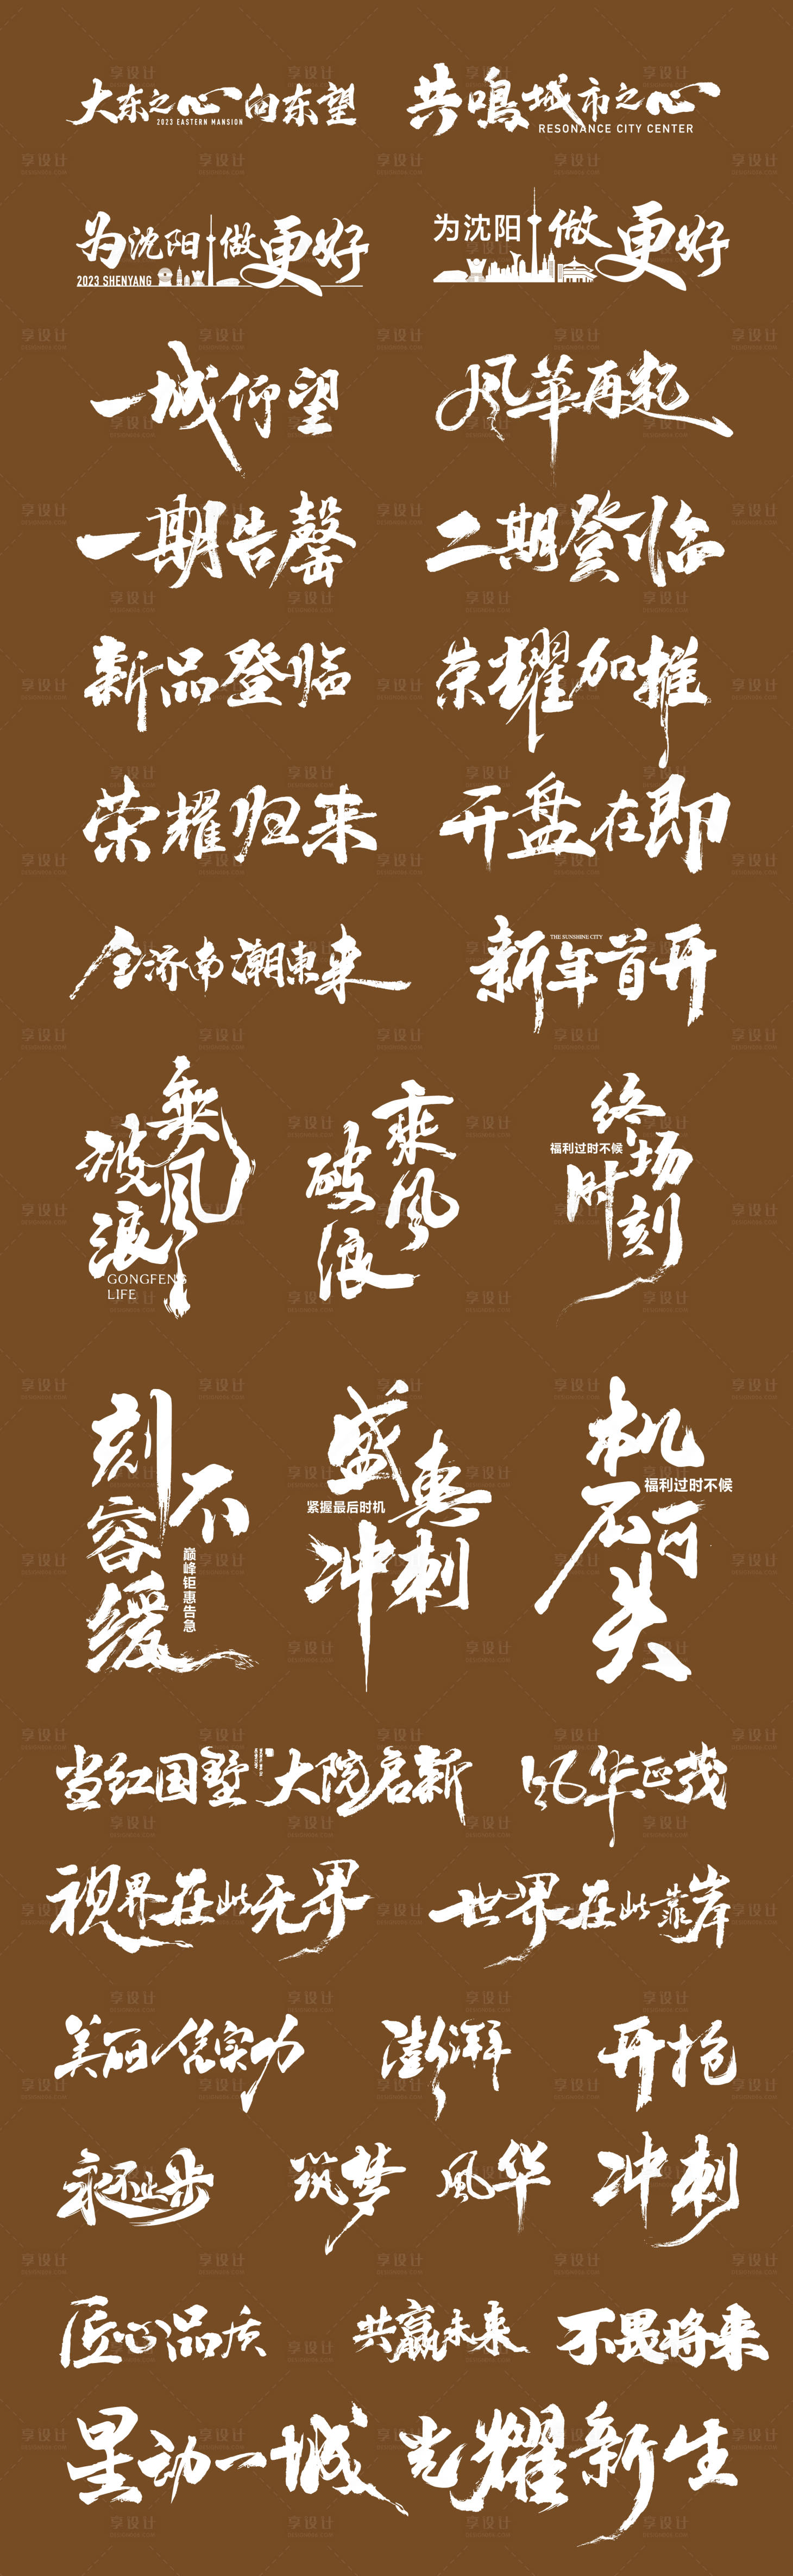 大东之心向东望
2023 EASTERN MANSION
共鸣城市之心
RESONANCE CITY CENTER
为沈阳做更好
2023 SHENYANG
为沈阳做更好
一城仰望
风华再起
一期告罄
二期登临
新品登临
荣耀加推
荣耀归来
开盘在即
全济南潮東来
新年首开
THE SUNSHINE CITY
乘风破浪
GONGFENG
LIFE
乘风破浪
终场时刻
福利过时不候
刻不容缓
巅峰钜惠告急
盛惠冲刺
紧握最后时机
机不可失
福利过时不候
当红国墅
大院启新
风华正茂
视界在此无界
世界在此靠岸
美丽凭实力
澎湃
开抢
永不止步
筑梦
風华
冲刺
匠心品质
共赢未来
不畏将来
星动一城
光耀新生
享设计
DESIGN006.COM